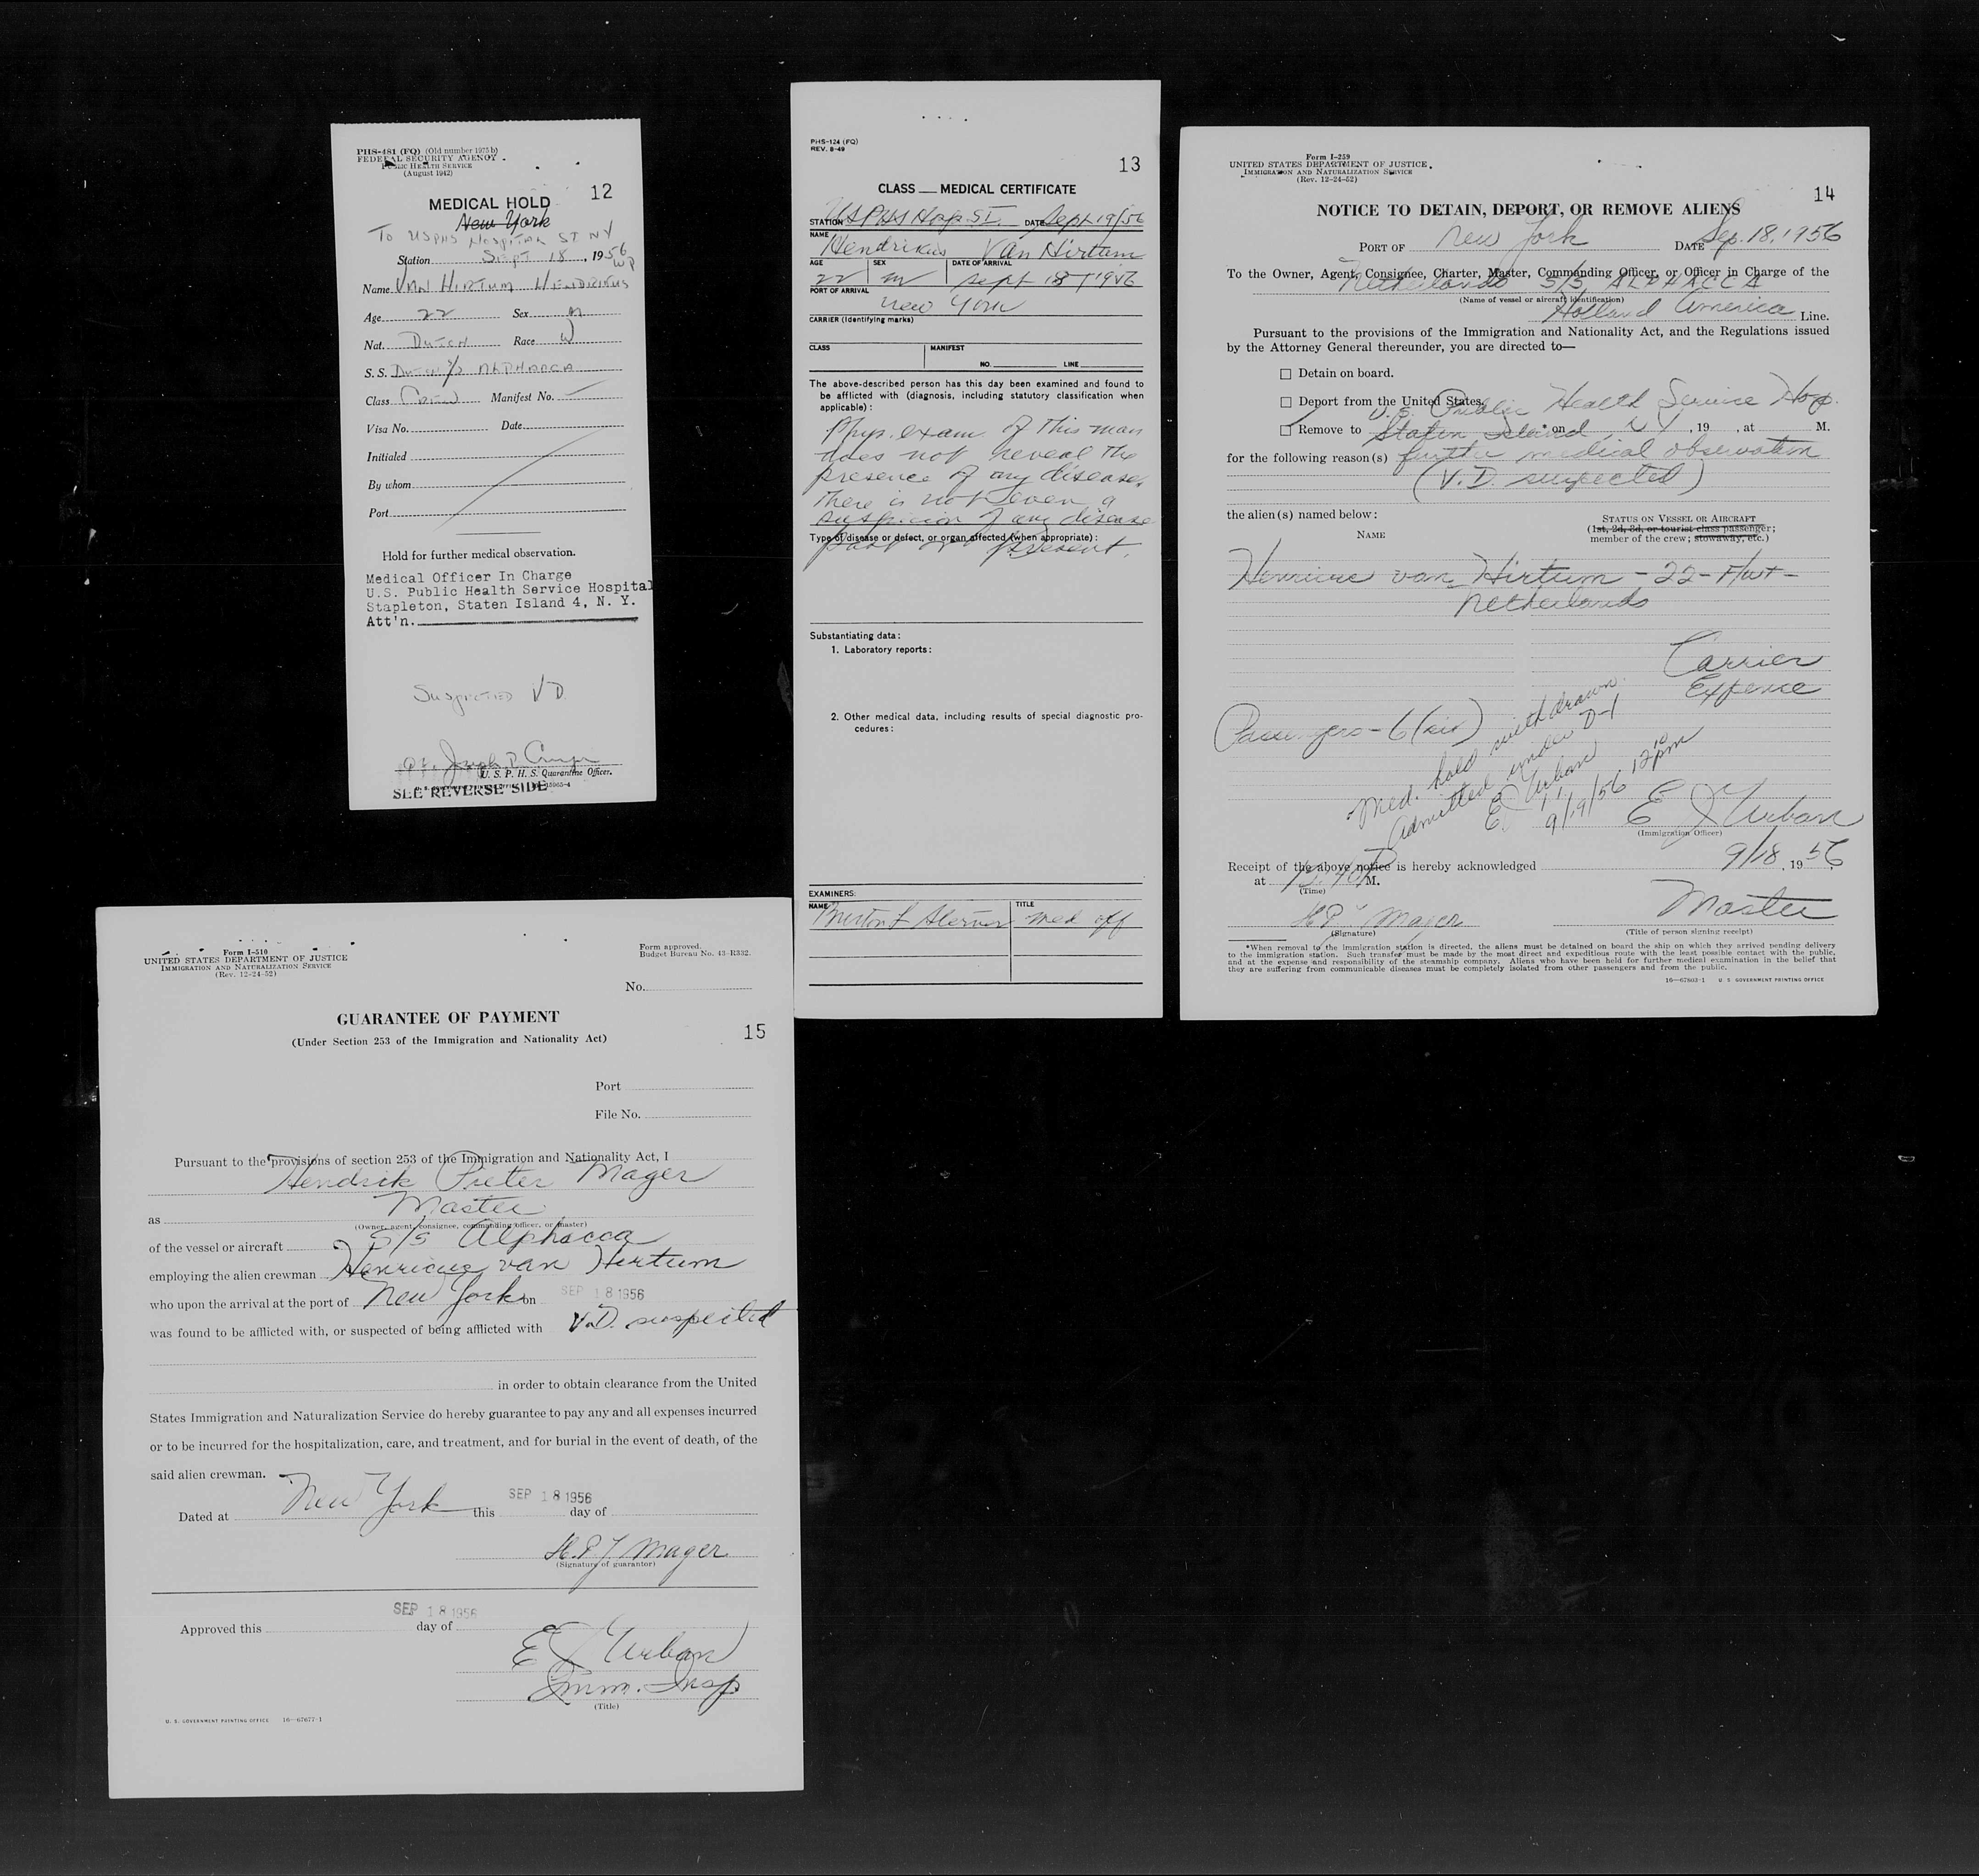 PHS-481 (FQ) (Old number 1975b)
FEDERAL SECURITY AGENCY
PUBLIC HEALTH SERVICE
(August 1942)
12
MEDICAL HOLD
New York
To USPHS Hospital ST NY
Station Sept 18, 1956
WP
Name Van Hirtum Hendrikus
Age 22 Sex M
Nat. Dutch Race W
S. S. Dutch S/S Alphacca
Class Crew Manifest No.
Visa No. Date
Initialed
By whom
Port
Hold for further medical observation.
Medical Officer In Charge
U.S. Public Health Service Hospital
Stapleton, Staten Island 4, N. Y.
Att'n.
Suspected VD
Joseph
U. S. P. H. S. Quarantine Officer.
SEE REVERSE SIDE
PHS-124 (FQ)
REV. 8-49
13
CLASS MEDICAL CERTIFICATE
STATION USPHS Hosp. S.I. DATE Sept 19/56
NAME
Hendrikus Van Hirtum
AGE SEX DATE OF ARRIVAL
22 m sept 18 1956
PORT OF ARRIVAL
new York
CARRIER (Identifying marks)
CLASS MANIFEST
NO. LINE
The above-described person has this day been examined and found to
be afflicted with (diagnosis, including statutory classification when
applicable):
Phys. exam of this man
does not reveal the
presence of any disease,
there is not even a
suspicion of any disease
Type of disease or defect, or organ affected (when appropriate):
past or present.
Substantiating data:
1. Laboratory reports:
2. Other medical data, including results of special diagnostic pro-
cedures:
EXAMINERS:
NAME TITLE
med off
Form I-259
UNITED STATES DEPARTMENT OF JUSTICE
IMMIGRATION AND NATURALIZATION SERVICE
(Rev. 12-24-52)
14
NOTICE TO DETAIN, DEPORT, OR REMOVE ALIENS
PORT OF New York DATE Sep. 18, 1956
To the Owner, Agent, Consignee, Charter, Master, Commanding Officer, or Officer in Charge of the
Netherlands S/S ALPHACCA
(Name of vessel or aircraft identification)
Holland America Line.
Pursuant to the provisions of the Immigration and Nationality Act, and the Regulations issued
by the Attorney General thereunder, you are directed to—
☐ Detain on board.
☐ Deport from the United States.
U.S. Public Health Service Hosp.
☐ Remove to Staten Island on N Y, 19 , at M.
for the following reason(s) further medical observation
(V.D. suspected)
the alien(s) named below:
STATUS ON VESSEL OR AIRCRAFT
(1st, 2d, 3d, or tourist class passenger;
NAME
member of the crew; stowaway, etc.)
van Hirtum - 22 -
Netherlands
Carrier
Expense
Passengers - 6 (six)
Med. hold withdrawn.
Admitted under D-1
E J Urban
9/19/56 12 10 pm
E J Urban
(Immigration Officer)
Receipt of the above notice is hereby acknowledged 9/18, 1956
at M.
(Time)
Mager Master
(Signature) (Title of person signing receipt)
*When removal to the immigration station is directed, the aliens must be detained on board the ship on which they arrived pending delivery
to the immigration station. Such transfer must be made by the most direct and expeditious route with the least possible contact with the public,
and at the expense and responsibility of the steamship company. Aliens who have been held for further medical examination in the belief that
they are suffering from communicable diseases must be completely isolated from other passengers and from the public.
16—67803-1 U. S. GOVERNMENT PRINTING OFFICE
Form I-510
UNITED STATES DEPARTMENT OF JUSTICE
IMMIGRATION AND NATURALIZATION SERVICE
(Rev. 12-24-52)
Form approved.
Budget Bureau No. 43-R332.
No.
GUARANTEE OF PAYMENT
15
(Under Section 253 of the Immigration and Nationality Act)
Port
File No.
Pursuant to the provisions of section 253 of the Immigration and Nationality Act, I
Hendrik Pieter Mager
as Master
(Owner, agent, consignee, commanding officer, or master)
of the vessel or aircraft S/S Alphacca
employing the alien crewman Henricus van Hirtum
who upon the arrival at the port of New York on SEP 18 1956
was found to be afflicted with, or suspected of being afflicted with V.D. suspected
in order to obtain clearance from the United
States Immigration and Naturalization Service do hereby guarantee to pay any and all expenses incurred
or to be incurred for the hospitalization, care, and treatment, and for burial in the event of death, of the
said alien crewman.
Dated at New York this SEP 18 1956 day of
H.P. Mager
(Signature of guarantor)
Approved this SEP 18 1956 day of
E J Urban
Imm. Insp
(Title)
U. S. GOVERNMENT PRINTING OFFICE 16—67677-1